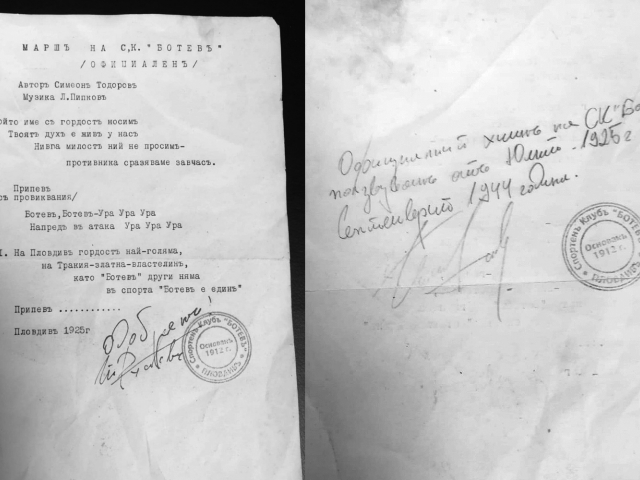 МАРШЪ НА С.К. "БОТЕВЪ"
/ОФИЦИАЛЕНЪ/
Авторъ Симеонъ Тодоровъ
Музика Л.Пипковъ
ойто име съ гордость носим
Твоятъ духъ е живъ у насъ
Нивга милость ний не просим-
противника сразяваме завчасъ.
Припевъ
съ провиквания/
Ботевъ,Ботевъ-Ура Ура Ура
Напредъ въ атака Ура Ура Ура
I. На Пловдивъ гордость най-голяма,
на Тракия-златна-властелинъ,
като "Ботевъ" други няма
въ спорта "Ботевъ е единъ"
Припевъ ............
Пловдивъ 1925г
Одобрено!
Спортенъ Клубъ "БОТЕВЪ"
Основанъ
1912 г.
ПЛОВДИВЪ
Официалний химнъ на СК "Бо
ползуванъ отъ Юлий - 1925 г
Септемврий 1944 година.
Спортенъ Клубъ "БОТЕВЪ"
Основанъ
1912 г.
ПЛОВДИВЪ